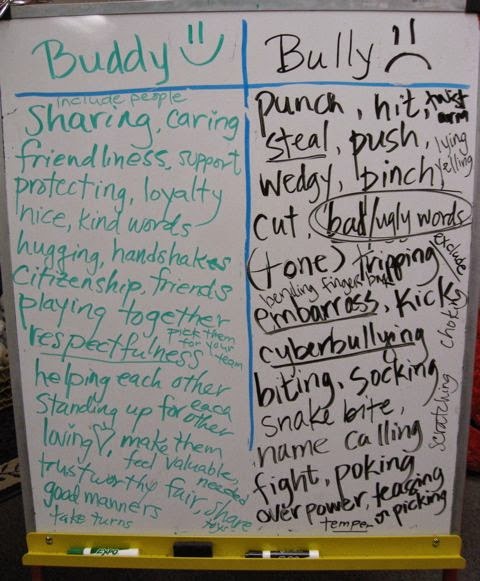 Buddy
include people
Sharing, caring
friendliness, support
protecting, loyalty
nice, kind words
hugging, handshakes
Citizenship, friends
playing together
respectfulness
pick them
for your
team
helping each other
Standing up for each
other
loving, make them
feel valuable,
needed
trustworthy fair, share
toys
good manners
take turns
Bully
punch, hit, twist
arm
steal, push,
lying
yelling
wedgy, pinch
cut, bad/ugly words
(tone) tripping
exclude
bending fingers back
embarrass, kicks
choking
cyberbullying
biting, socking
scratching
snake bite,
name calling
fight, poking
over power, teasing
temper or picking
EXPO
EXPO